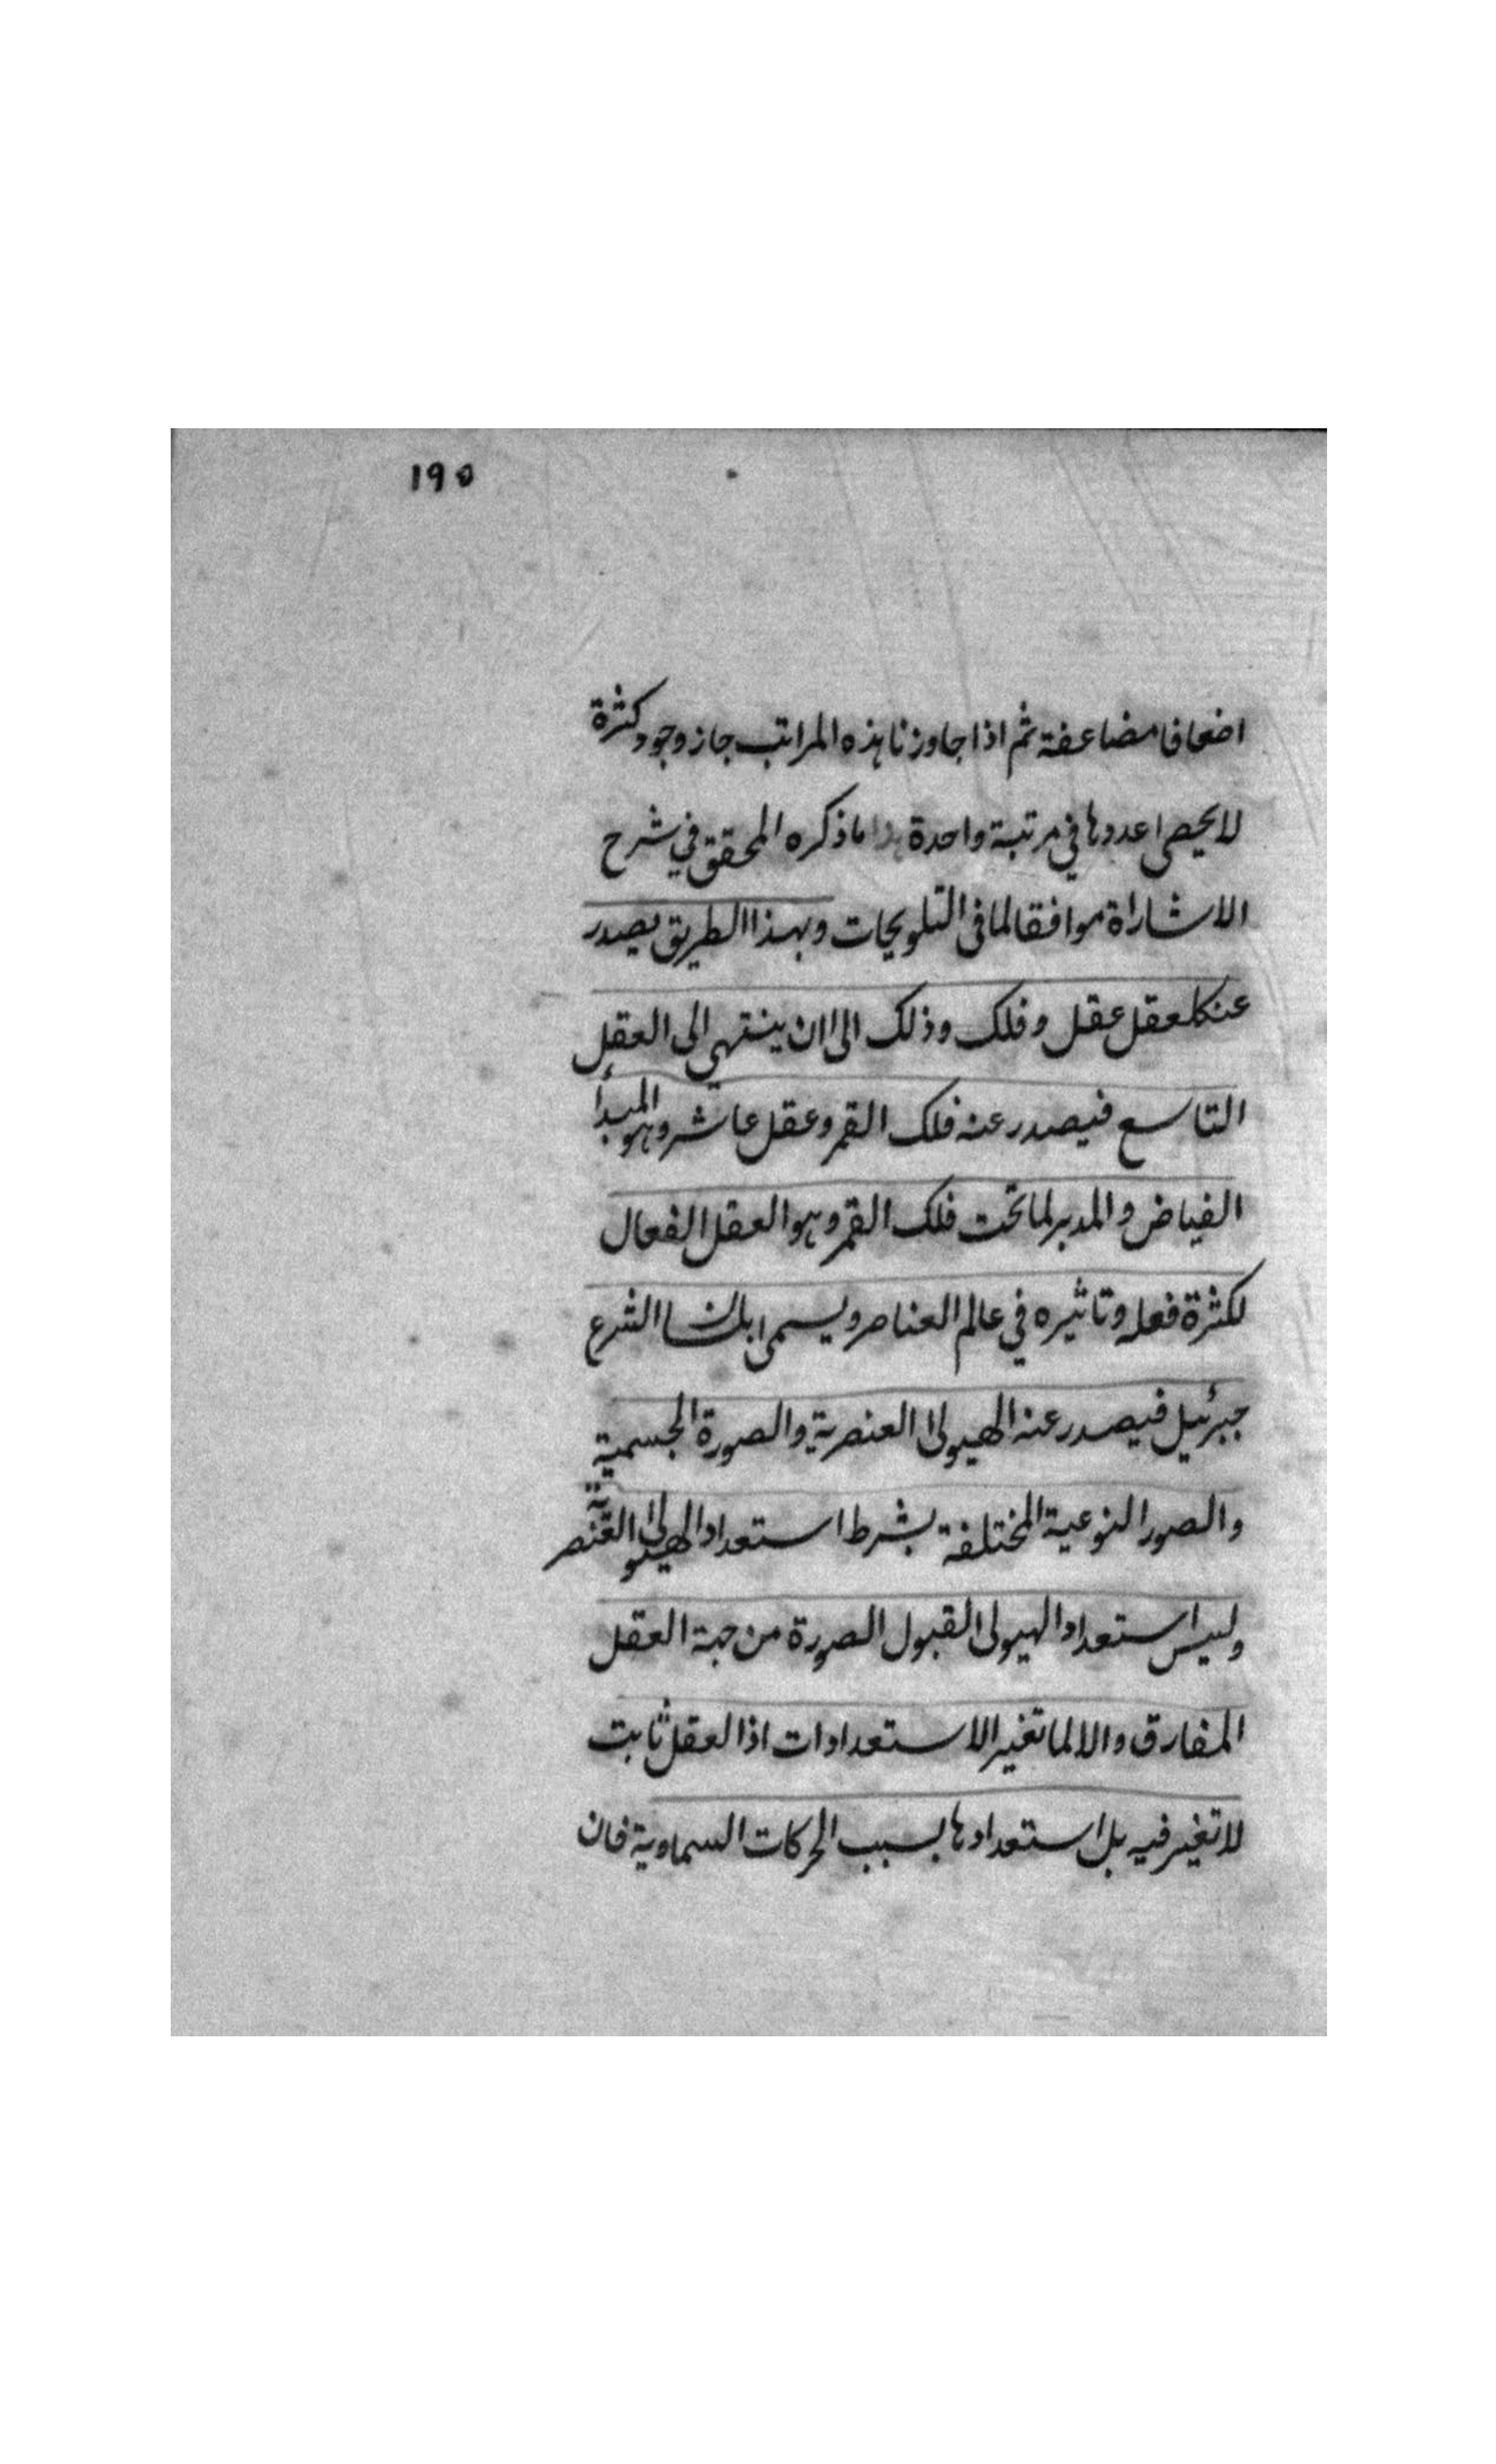 ١٩٥
اضعافا مضاعفة ثم اذا جاوزنا هذه المراتب جاز وجود كثرة
لا يحصى عددها في مرتبة واحدة هذا ما ذكره المحقق في شرح
الاشاراة موافقا لما في التلويحات وبهذا الطريق يصدر
عن كل عقل عقل وفلك وذلك الى ان ينتهي الى العقل
التاسع فيصدر عنه فلك القمر وعقل عاشر وهو المبدأ
الفياض والمدبر لما تحت فلك القمر وهو العقل الفعال
لكثرة فعله وتاثيره في عالم العناصر ويسمى بلسان الشرع
جبرئيل فيصدر عنه الهيولى العنصرية والصورة الجسمية
والصور النوعية المختلفة بشرط استعداد الهيولى العنصرية
وليس استعداد الهيولى لقبول الصورة من جهة العقل
المفارق والا لما تغير الاستعدادات اذ العقل ثابت
لا تغير فيه بل استعدادها بسبب الحركات السماوية فان